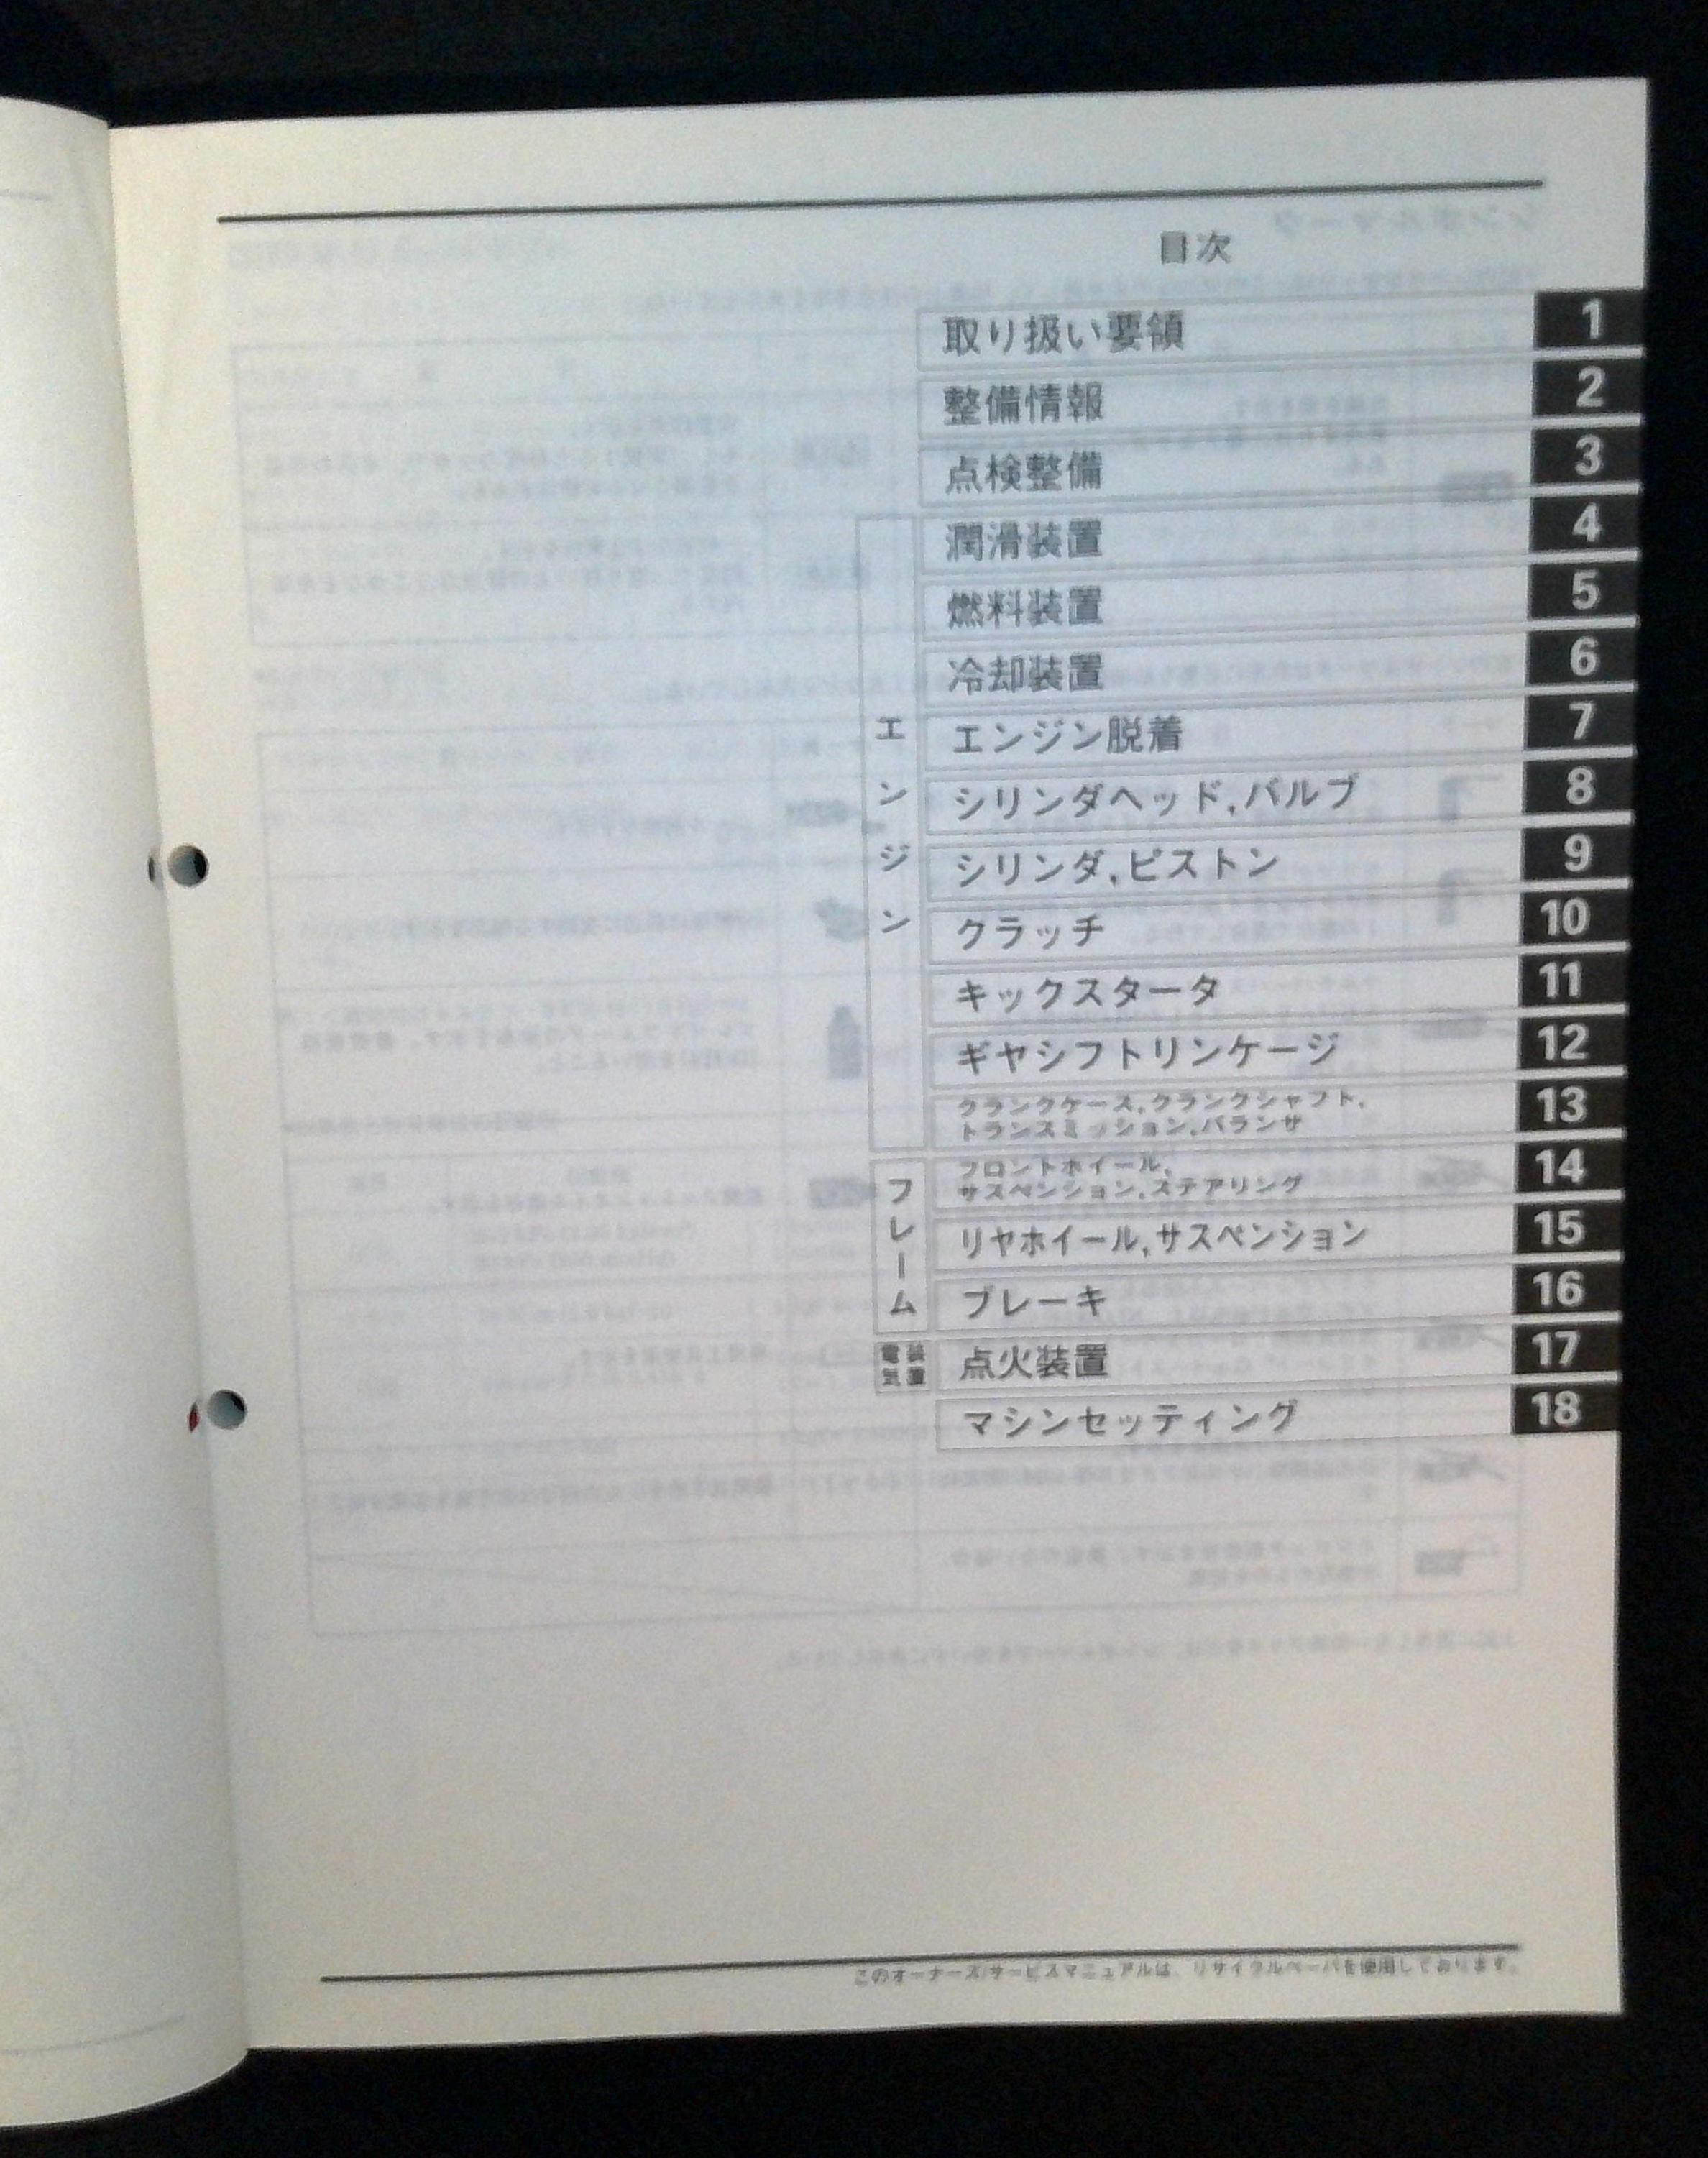 目次
取り扱い要領 1
整備情報 2
点検整備 3
エンジン
潤滑装置 4
燃料装置 5
冷却装置 6
エンジン脱着 7
シリンダヘッド,バルブ 8
シリンダ,ピストン 9
クラッチ 10
キックスタータ 11
ギヤシフトリンケージ 12
クランクケース,クランクシャフト,
トランスミッション,バランサ 13
フレーム
フロントホイール,
サスペンション,ステアリング 14
リヤホイール,サスペンション 15
ブレーキ 16
電気装置
点火装置 17
マシンセッティング 18
このオーナーズ/サービスマニュアルは、リサイクルペーパを使用しております。